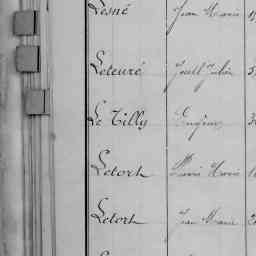 Lesné Jean Marie
Leteuré Joull Julien
Le Tilly Eugène
Letorh Marie
Letorh Jean Marie